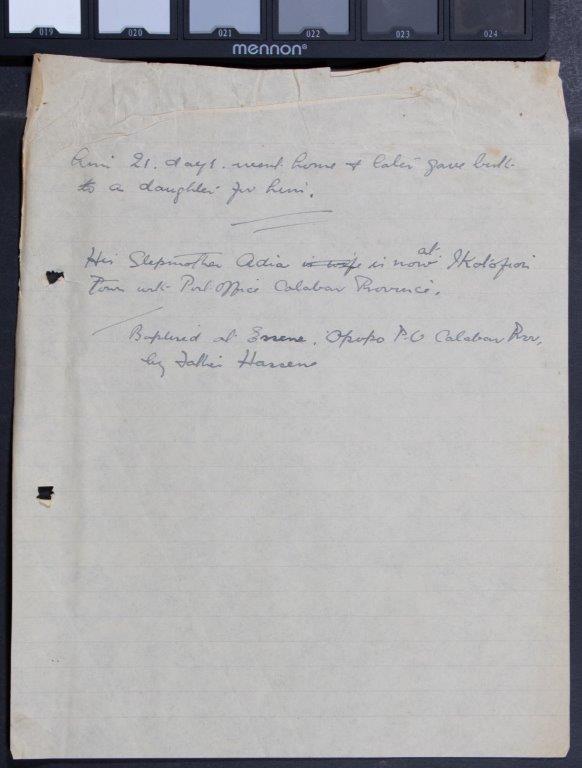 019 020 021 022 023 024
mennon®
him 21. days. went home & later gave birth
to a daughter for him.
His Stepmother Adia is wife is now at Ikolofiori
Town with Post Office Calabar Province.
Baptised at Essene. Opopo P.O Calabar Prov,
by Father Hassene